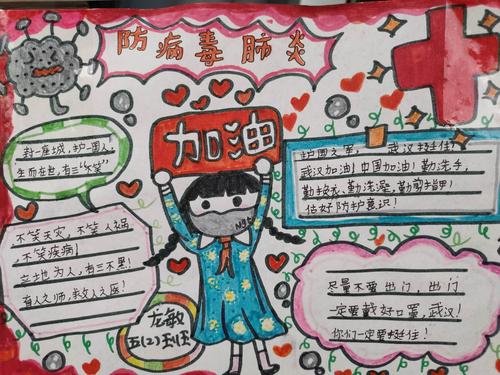 防病毒肺炎
加油
封一座城,护一国人,
生而在世,有三"不笑"
不笑天灾,不笑人祸,
不笑疾病!
立地为人,有三不黑!
育人之师,救人之医!
武汉挺住!
武汉加油!中国加油!勤洗手,
勤换衣,勤洗澡,勤剪指甲!
估好防护意识!
N95
龙敏
五(2)班
尽量不要出门,出门
一定要戴好口罩,武汉!
你们一定要挺住!